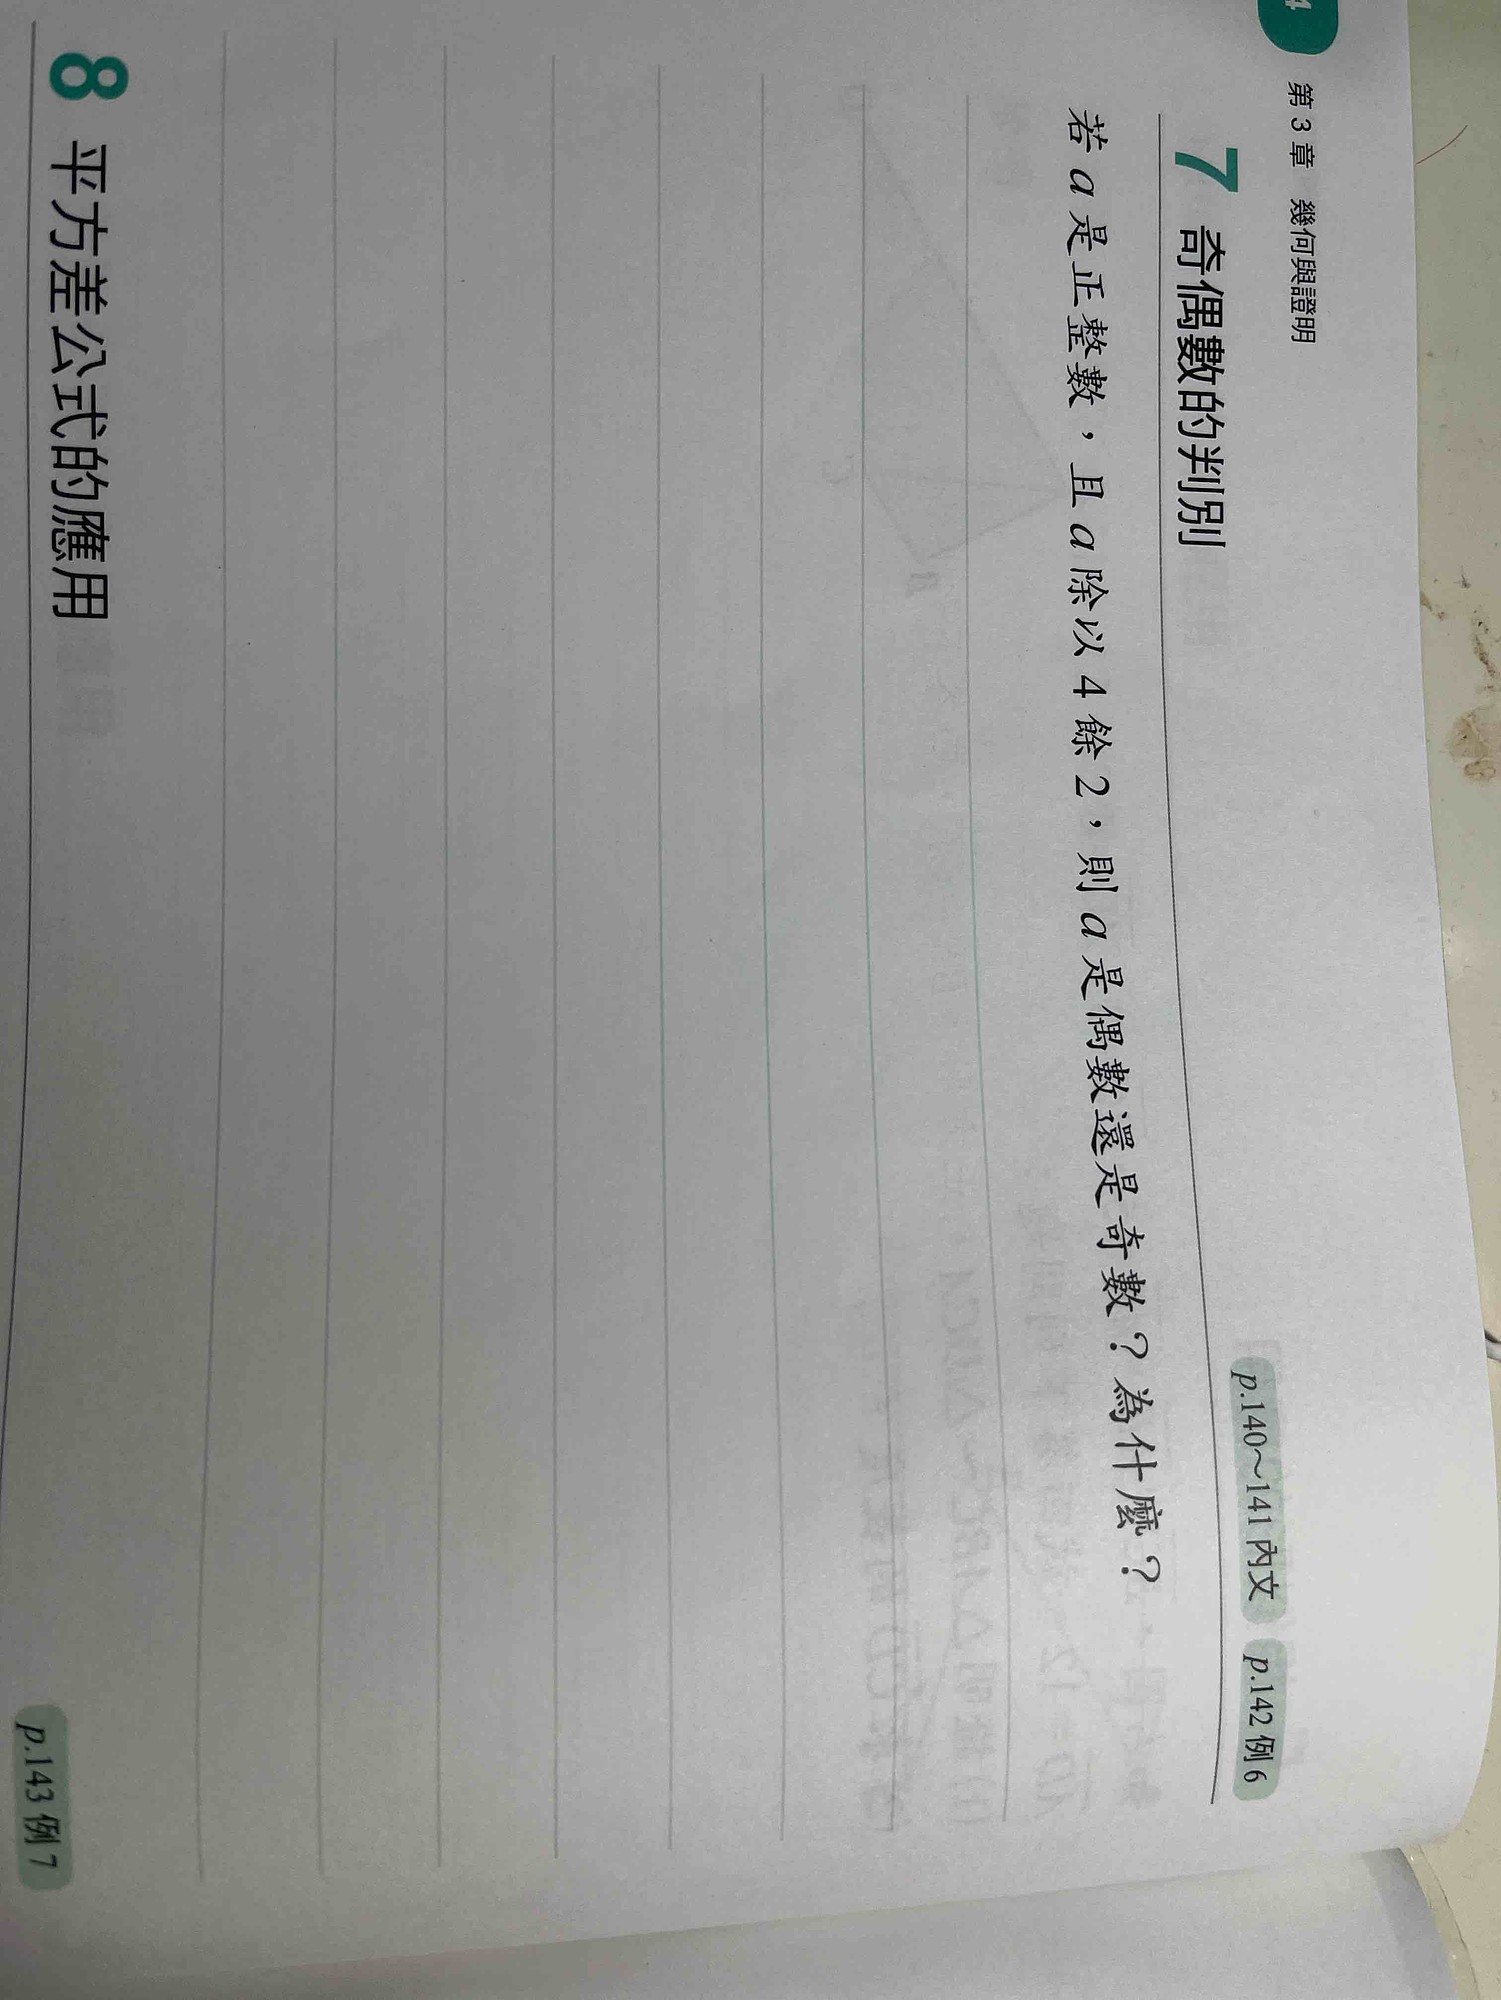 4
第3章 幾何與證明
7 奇偶數的判別
p.140～141內文 p.142例6
若a是正整數，且a除以4餘2，則a是偶數還是奇數？為什麼？
8 平方差公式的應用
p.143例7